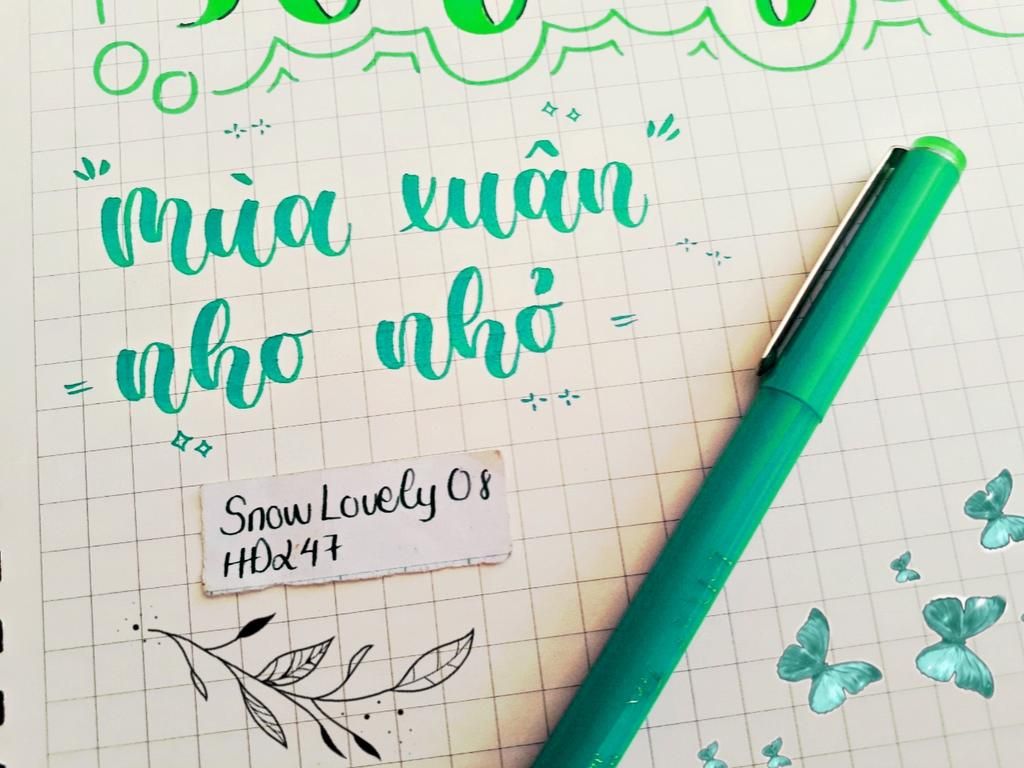 "mùa xuân"
nho nhỏ
Snow Lovely 08
HĐ247